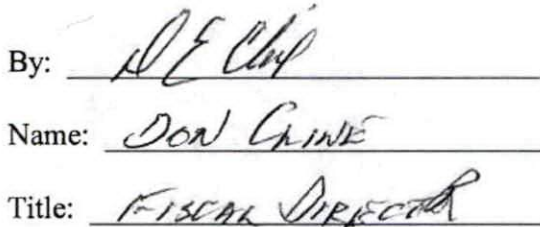 By: D E Cline
Name: DON CLINE
Title: FISCAL DIRECTOR